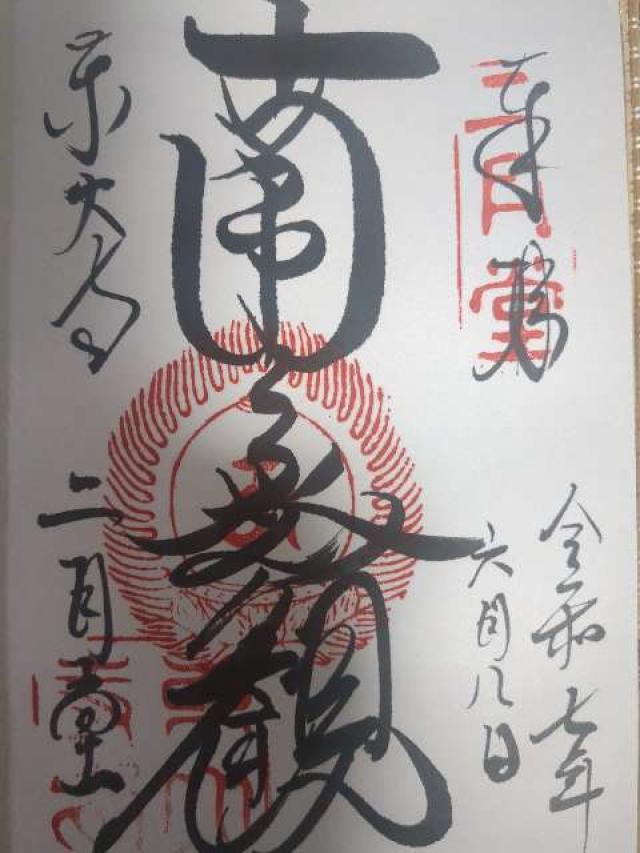 奉拝
二月堂
令和七年
六月八日
南無観
東大寺
二月堂